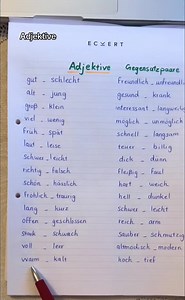 Adjektive
ECKERT
Adjektive Gegensatzpaare
gut _ schlecht
alt _ jung
groß _ klein
viel _ wenig
früh _ spät
laut _ leise
schwer _ leicht
richtig _ falsch
schön _ hässlich
fröhlich _ traurig
lang _ kurz
offen _ geschlossen
stark _ schwach
voll _ leer
warm _ kalt
freundlich _ unfreundlich
gesund _ krank
interessant _ langweilig
möglich _ unmöglich
schnell _ langsam
teuer _ billig
dick _ dünn
fleißig _ faul
hart _ weich
hell _ dunkel
schwer _ leicht
reich _ arm
sauber _ schmutzig
altmodisch _ modern
hoch _ tief